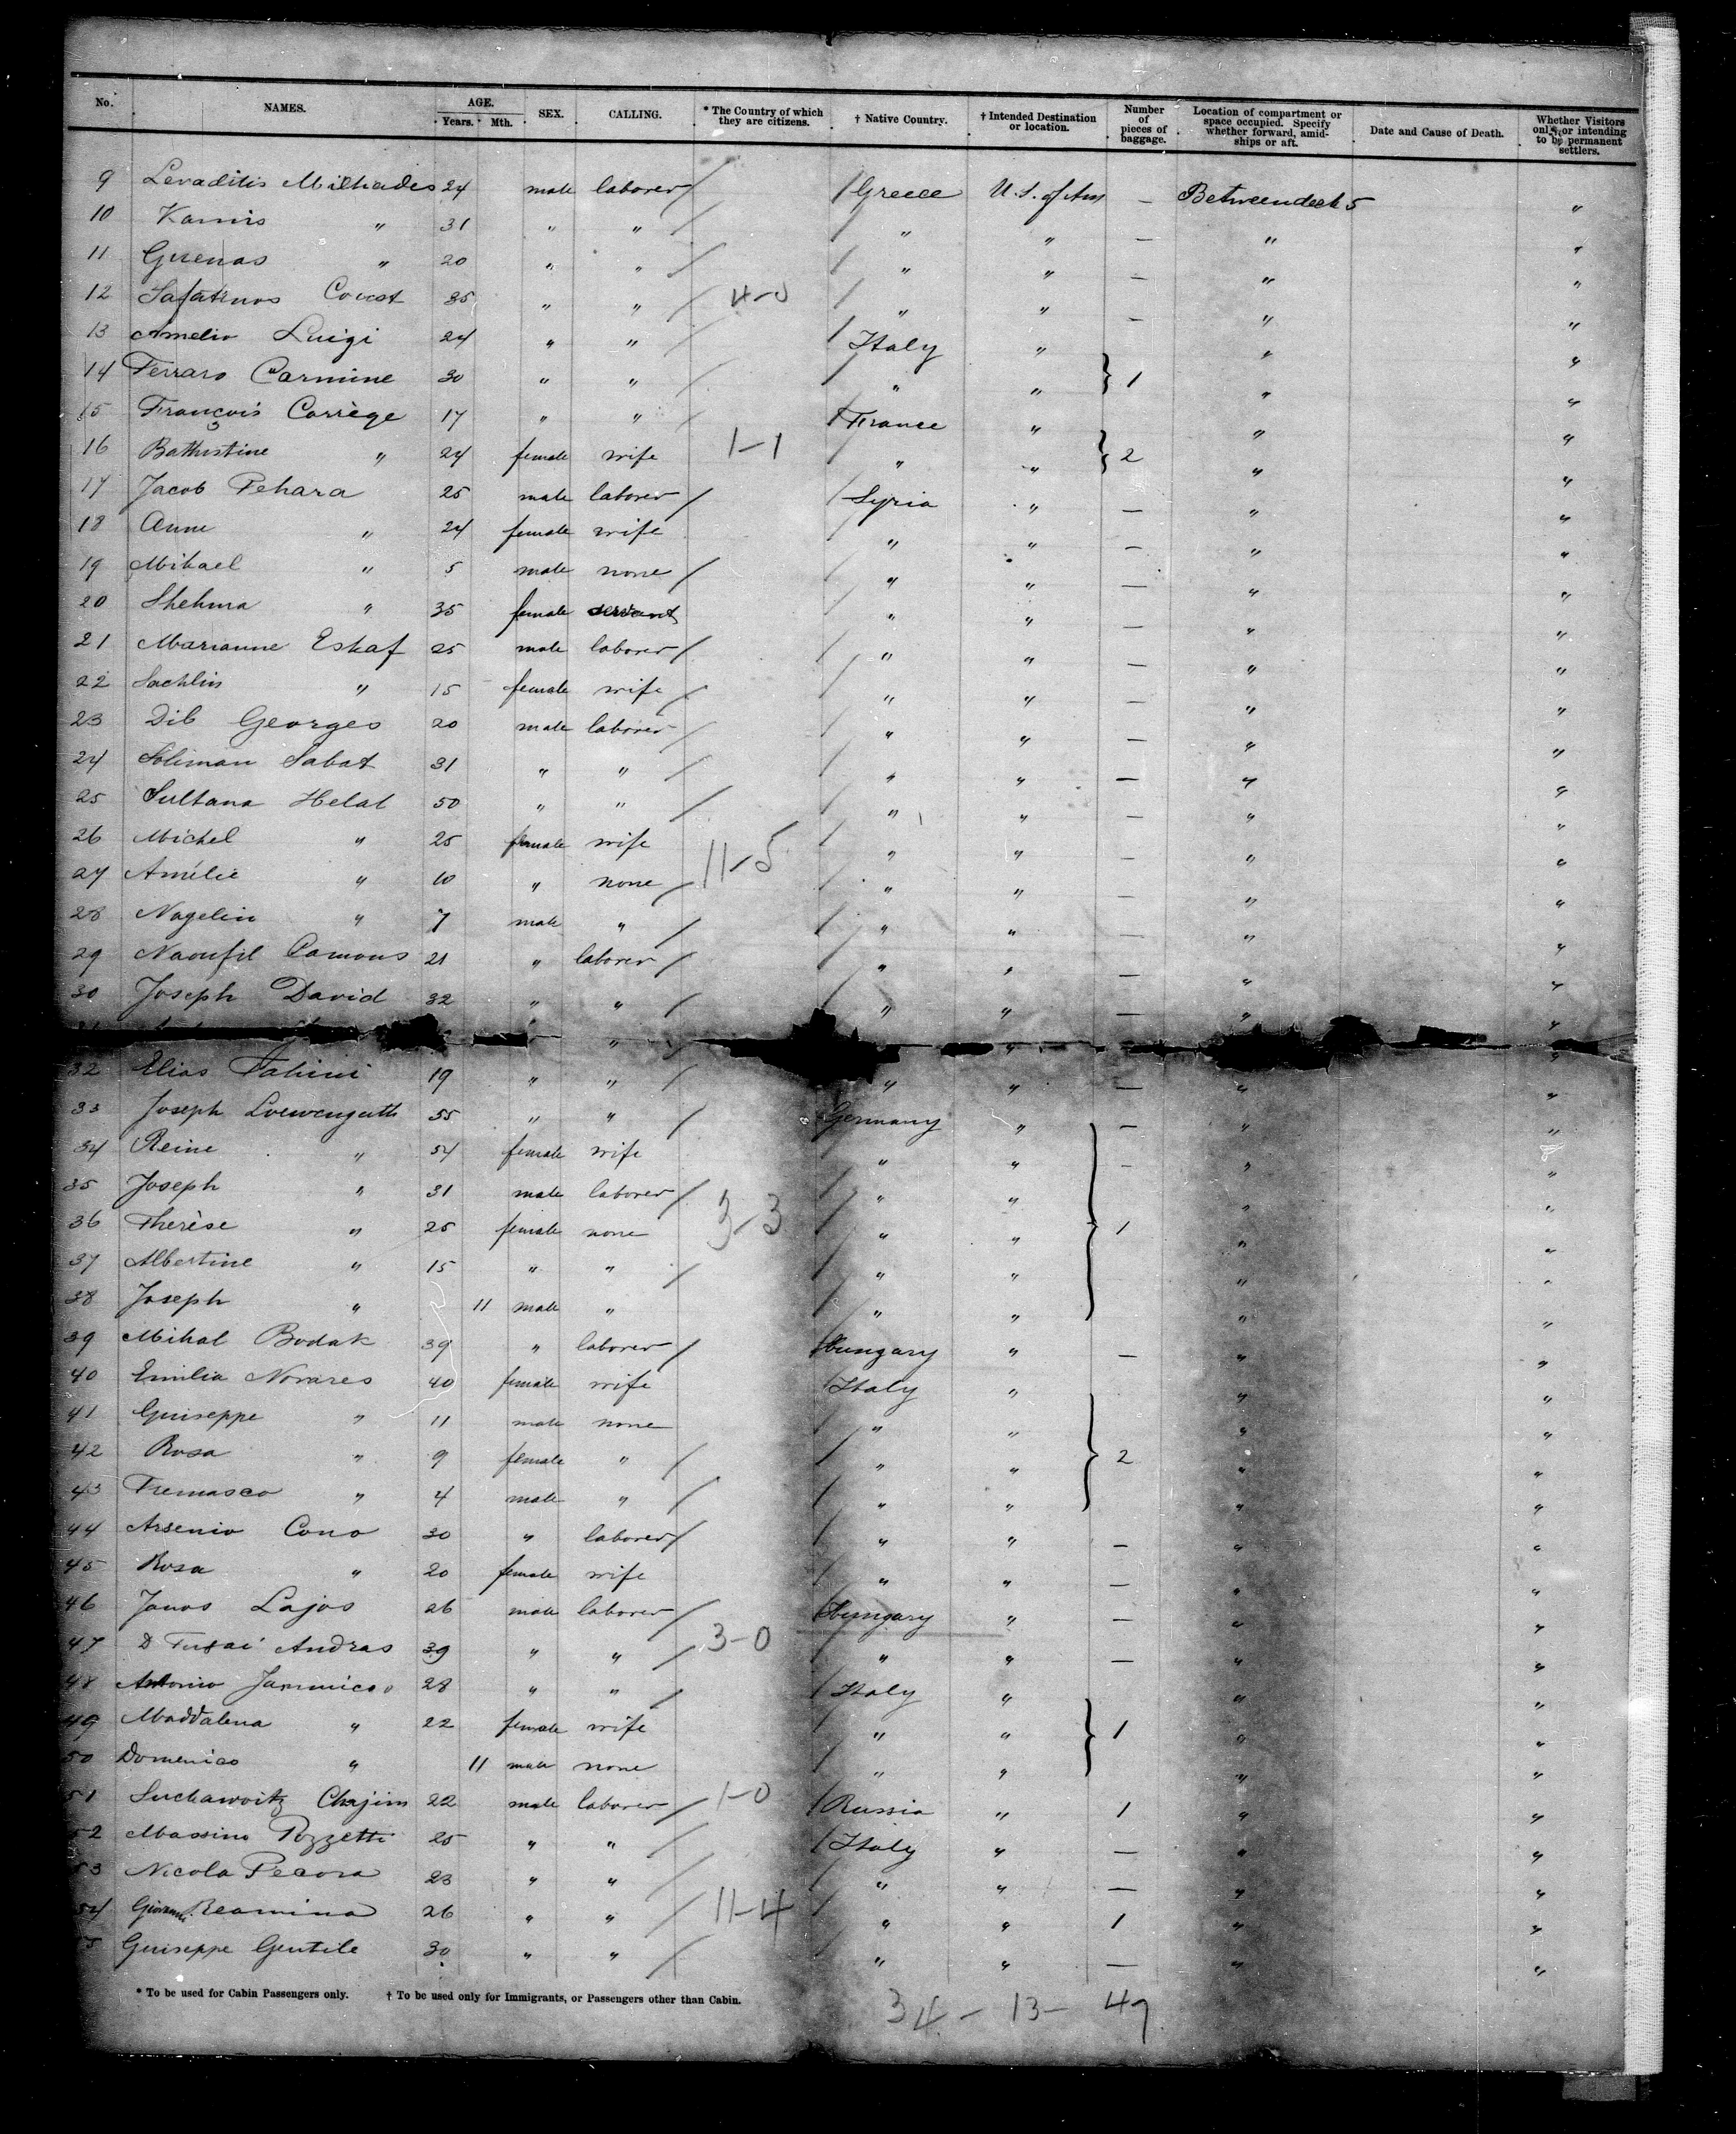 No. NAMES. AGE. Years. Mth. SEX. CALLING. * The Country of which they are citizens. † Native Country. † Intended Destination or location. Number of pieces of baggage. Location of compartment or space occupied. Specify whether forward, amidships or aft. Date and Cause of Death. Whether Visitors only or intending to be permanent settlers.
9 Levaditis Milthiades 24 male laborer / / Greece U. S. of Am — Betweendeck 5 "
10 Kamis " 31 " " / / " " — " "
11 Guenas " 20 " " / / " " — " "
12 Safatinos Const 35 " " / 4-0 / " " — " "
13 Amelio Luigi 24 " " / / Italy " " "
14 Ferraro Carmine 30 " " / / " " } 1 " "
15 François Corrège 17 " " / / France " " "
16 Bathistine " 24 female wife 1-1 / " " } 2 " "
17 Jacob Pehara 25 male laborer / / Syria " — " "
18 Anne " 24 female wife / " " — " "
19 Mikael " 5 male none / / " " — " "
20 Shehma " 35 female servant / " " — " "
21 Marianne Eskaf 25 male laborer / / " " — " "
22 Sachlin " 15 female wife / / " " — " "
23 Dib Georges 20 male laborer / / " " — " "
24 Soliman Sabat 31 " " / / " " — " "
25 Sultana Helal 50 " " / / " " — " "
26 Michel " 25 female wife 11-5 / " " — " "
27 Amélie " 10 " none / / " " — " "
28 Nagelin " 7 male " / / " " — " "
29 Naoufil Camous 21 " laborer / / " " — " "
30 Joseph David 32 " " / / " " — " "
32 Elias Fahini 19 " " / " " — " "
33 Joseph Loewenguth 55 " " / Germany " — " "
34 Reine " 54 female wife / " " — " "
35 Joseph " 31 male laborer / 3-3 / " " " "
36 Therèse " 25 female none / " " } 1 " "
37 Albertine " 15 " " / / " " " "
38 Joseph " 11 male " / " " " "
39 Mihal Bodak 39 " laborer / / Hungary " — " "
40 Emilia Novares 40 female wife / Italy " " "
41 Guiseppe " 11 male none / " " " "
42 Rosa " 9 female " / / " " } 2 " "
43 Fremasco " 4 male " / / " " " "
44 Arsenio Cono 30 " laborer / / " " — " "
45 Rosa " 20 female wife / " " — " "
46 Janos Lajos 26 male laborer / / Hungary " — " "
47 D Tussai Andras 39 " " / 3-0 " " — " "
48 Antonio Jammico 28 " " / / Italy " " "
49 Maddalena " 22 female wife / " " } 1 " "
50 Domenico " 11 male none / " " " "
51 Suchawoitz Chajim 22 male laborer / 1-0 / Russia " 1 " "
52 Massimo Pozzetti 25 " " / / Italy " — " "
53 Nicola Pecora 23 " " / / " " — " "
54 Giovanni Reamina 26 " " / 11-4 / " " 1 " "
55 Guiseppe Gentile 30 " " / / " " — " "
* To be used for Cabin Passengers only. † To be used only for Immigrants, or Passengers other than Cabin.
34 - 13 - 47